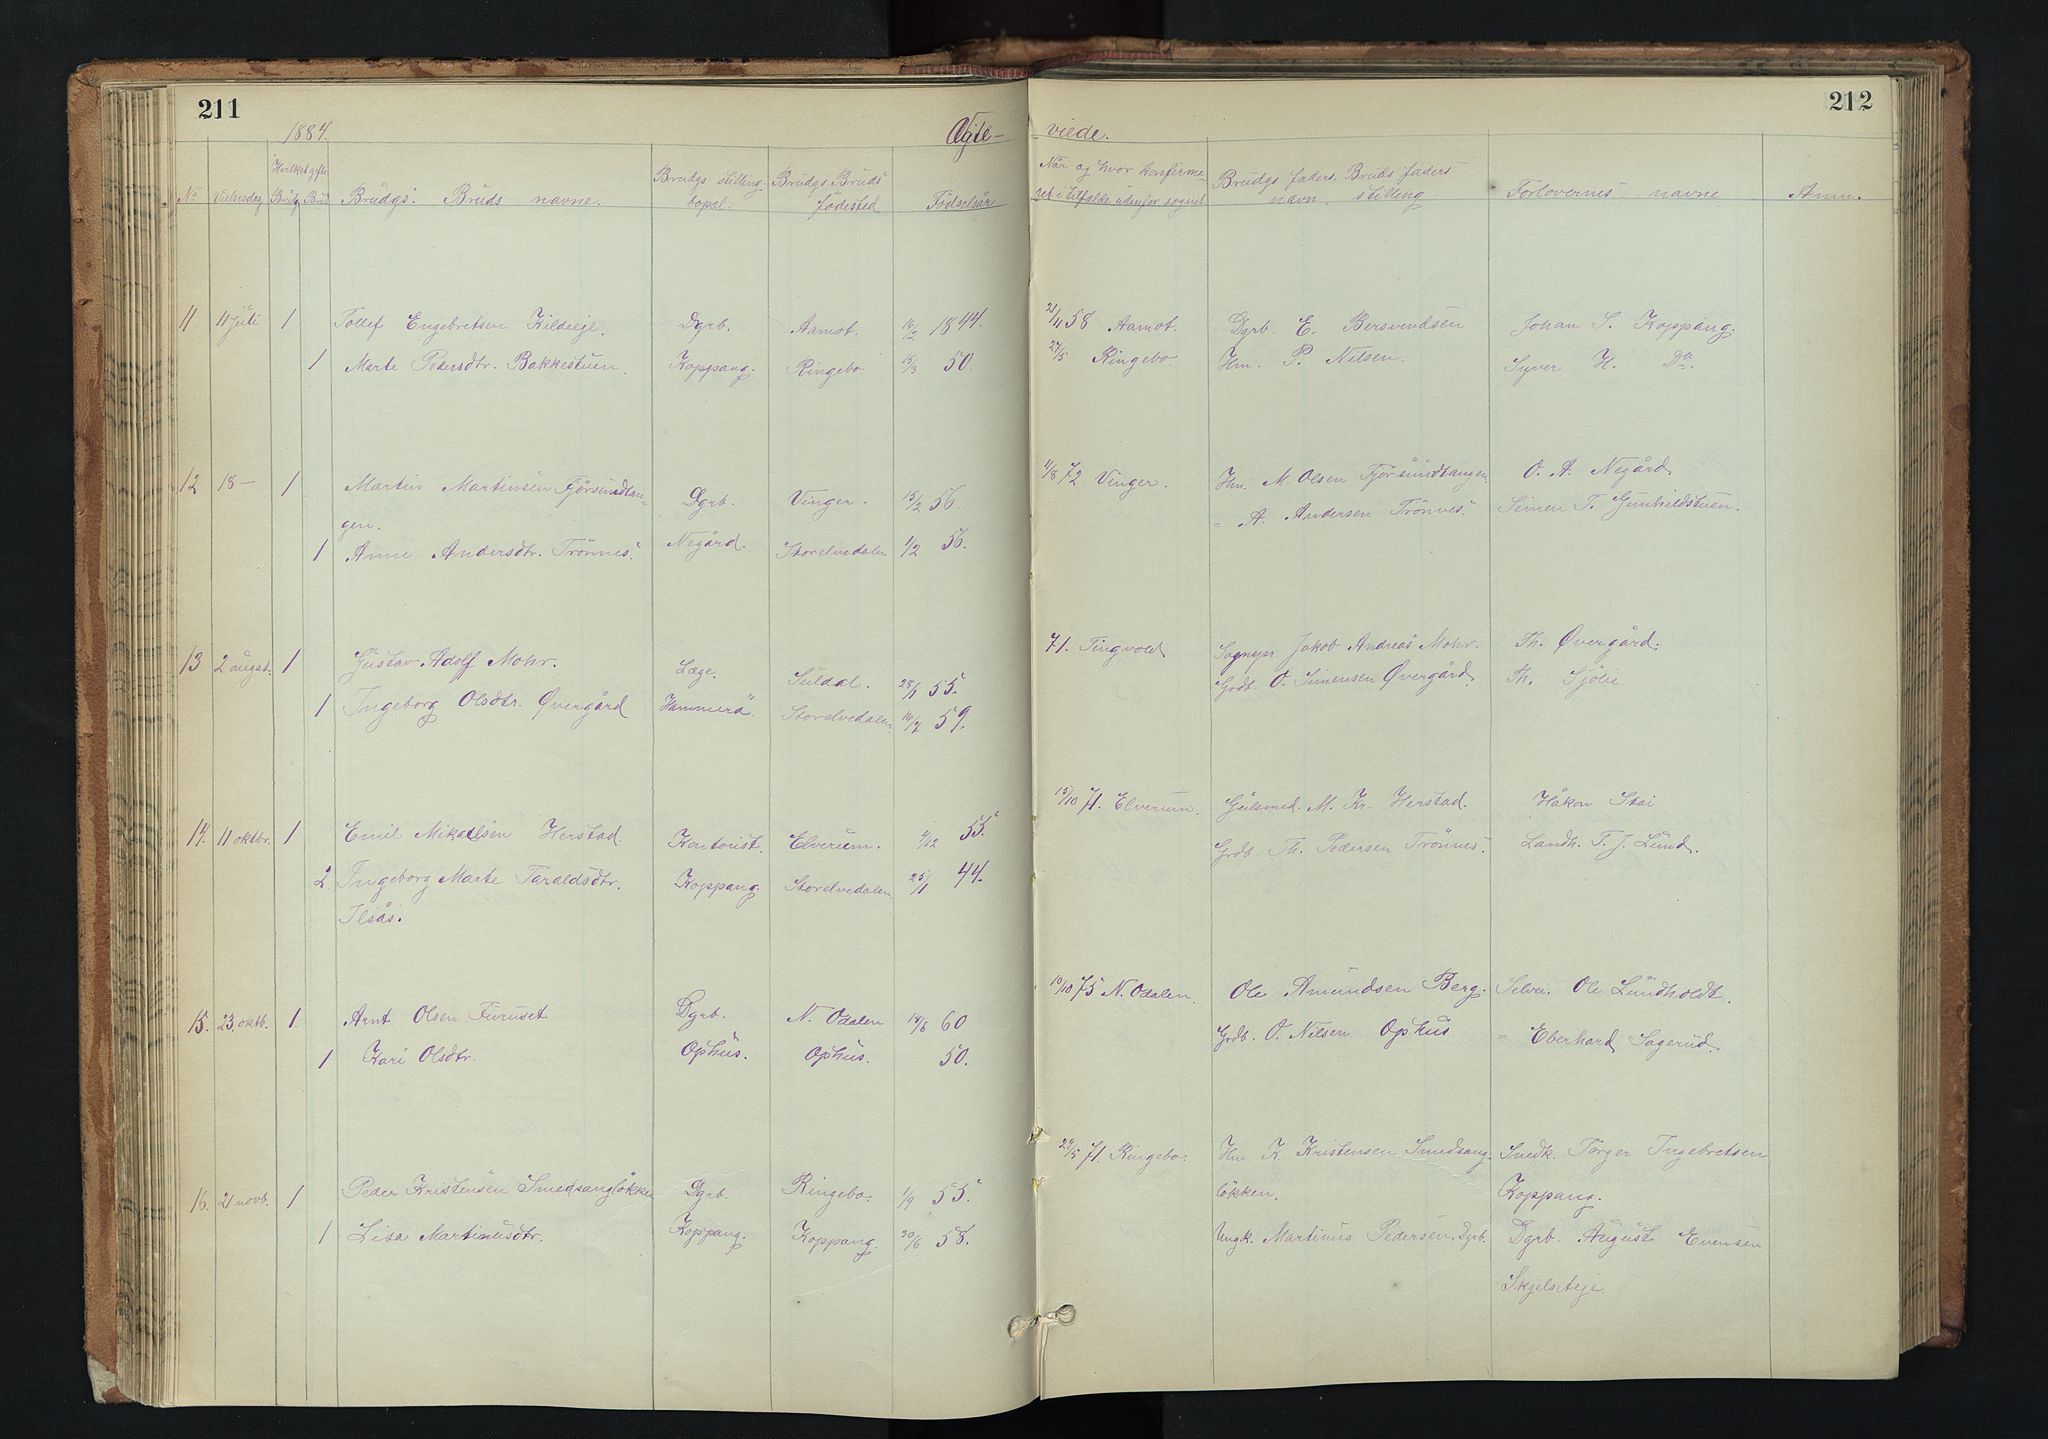 211
212
1884.
Ægte- viede.
No Vielsesdag Hvilket gifte Brudg Brud Brudgs. Bruds navne. Brudgs stilling bopæl. Brudgs Bruds fødested Fødselsår
Når og hvor konfirme-
ret i tilfælde udenfor sognet Brudgs faders Bruds faders navn, stilling Forlovernes navne Anm.
11 11 juli 1 Tollef Engebretsen Kildeeje. Dgrb. Aamot. 1844. 58 Aamot. Dgrb. E. Bersvendsen Johan S. Koppang.
1 Marte Pedersdtr. Bakkestuen. Koppang. Ringebo 15/3 50. 27/5 Ringebo. Hm. P. Nilsen. Syver H. Do.
12 18 — 1 Martin Martinsen Fjörsundtan-
gen. Dgrb. Vinger. 15/2 56. 11/8 72 Vinger. Hm. M. Olsen Fjörsundtangen O. A. Negård
1 Anne Andersdtr. Trönnes. Negård. Storelvedalen 1/2 56. = A. Andersen Trönnes. Simen T. Gunhildstuen.
13 2 augst. 1 Gustav Adolf Mohr. Læge. Suldal. 28/1 55. 71. Tingvold Sognepr. Jakob Andreas Mohr. Th. Øvergård.
1 Ingeborg Olsdtr. Øvergård Hammerø. Storelvedalen. 16/7 59. Grdb. O. Simensen Øvergård. Th. Sjölie.
14. 11 oktbr. 1 Emil Mikaelsen Herstad. Kontorist. Elverum. 55. 15/10 71. Elverum. Gulsmed. M. Kr. Herstad. Håkon Stai
2 Ingeborg Marte Taraldsdtr.
Ilsås. Koppang Storelvedalen 25/1 44. Grdb. Th. Pedersen Trönnes. Landh. T. J. Lund.
15. 23. oktb. 1. Arnt Olsen Furuset Dgrb. N. Odalen 60 10/10 75 N. Odalen. Ole Amundsen Berg. Selvei. Ole Lundholdt.
1 Kari Olsdtr. Ophus. Ophus. 50. Grdb. O. Nilsen Ophus = Eberhard Sagerud.
16. 21 novb. 1 Peder Kristensen Smedsangløkken Dgrb. Ringebo. 1/9 55. 29/5 71. Ringebo. Hm K. Kristensen Smedsang-
løkken. Snedk. Torger Ingebretsen
Koppang.
1 Lisa Martinusdtr. Koppang. Koppang. 30/6 58. Ungk. Martinus Pedersen, Dgrb. Dgrb. August Evensen
Skjelseteje